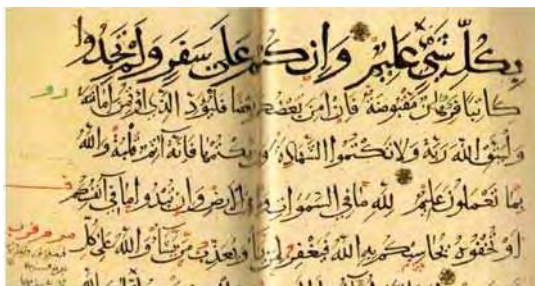 بِكُلِّ شَيْءٍ عَلِيمٌ وَإِن كُنتُمْ عَلَىٰ سَفَرٍ وَلَمْ تَجِدُوا
كَاتِبًا فَرِهَانٌ مَقْبُوضَةٌ فَإِنْ أَمِنَ بَعْضُكُمْ بَعْضًا فَلْيُؤَدِّ الَّذِي اؤْتُمِنَ أَمَانَتَهُ
وَلْيَتَّقِ اللهَ رَبَّهُ وَلَا تَكْتُمُوا الشَّهَادَةَ وَمَن يَكْتُمْهَا فَإِنَّهُ آثِمٌ قَلْبُهُ وَاللهُ
بِمَا تَعْمَلُونَ عَلِيمٌ لِلَّهِ مَا فِي السَّمَوَاتِ وَمَا فِي الْأَرْضِ وَإِن تُبْدُوا مَا فِي أَنفُسِكُمْ
أَوْ تُخْفُوهُ يُحَاسِبْكُم بِهِ اللهُ فَيَغْفِرُ لِمَن يَشَاءُ وَيُعَذِّبُ مَن يَشَاءُ وَاللهُ عَلَىٰ كُلِّ